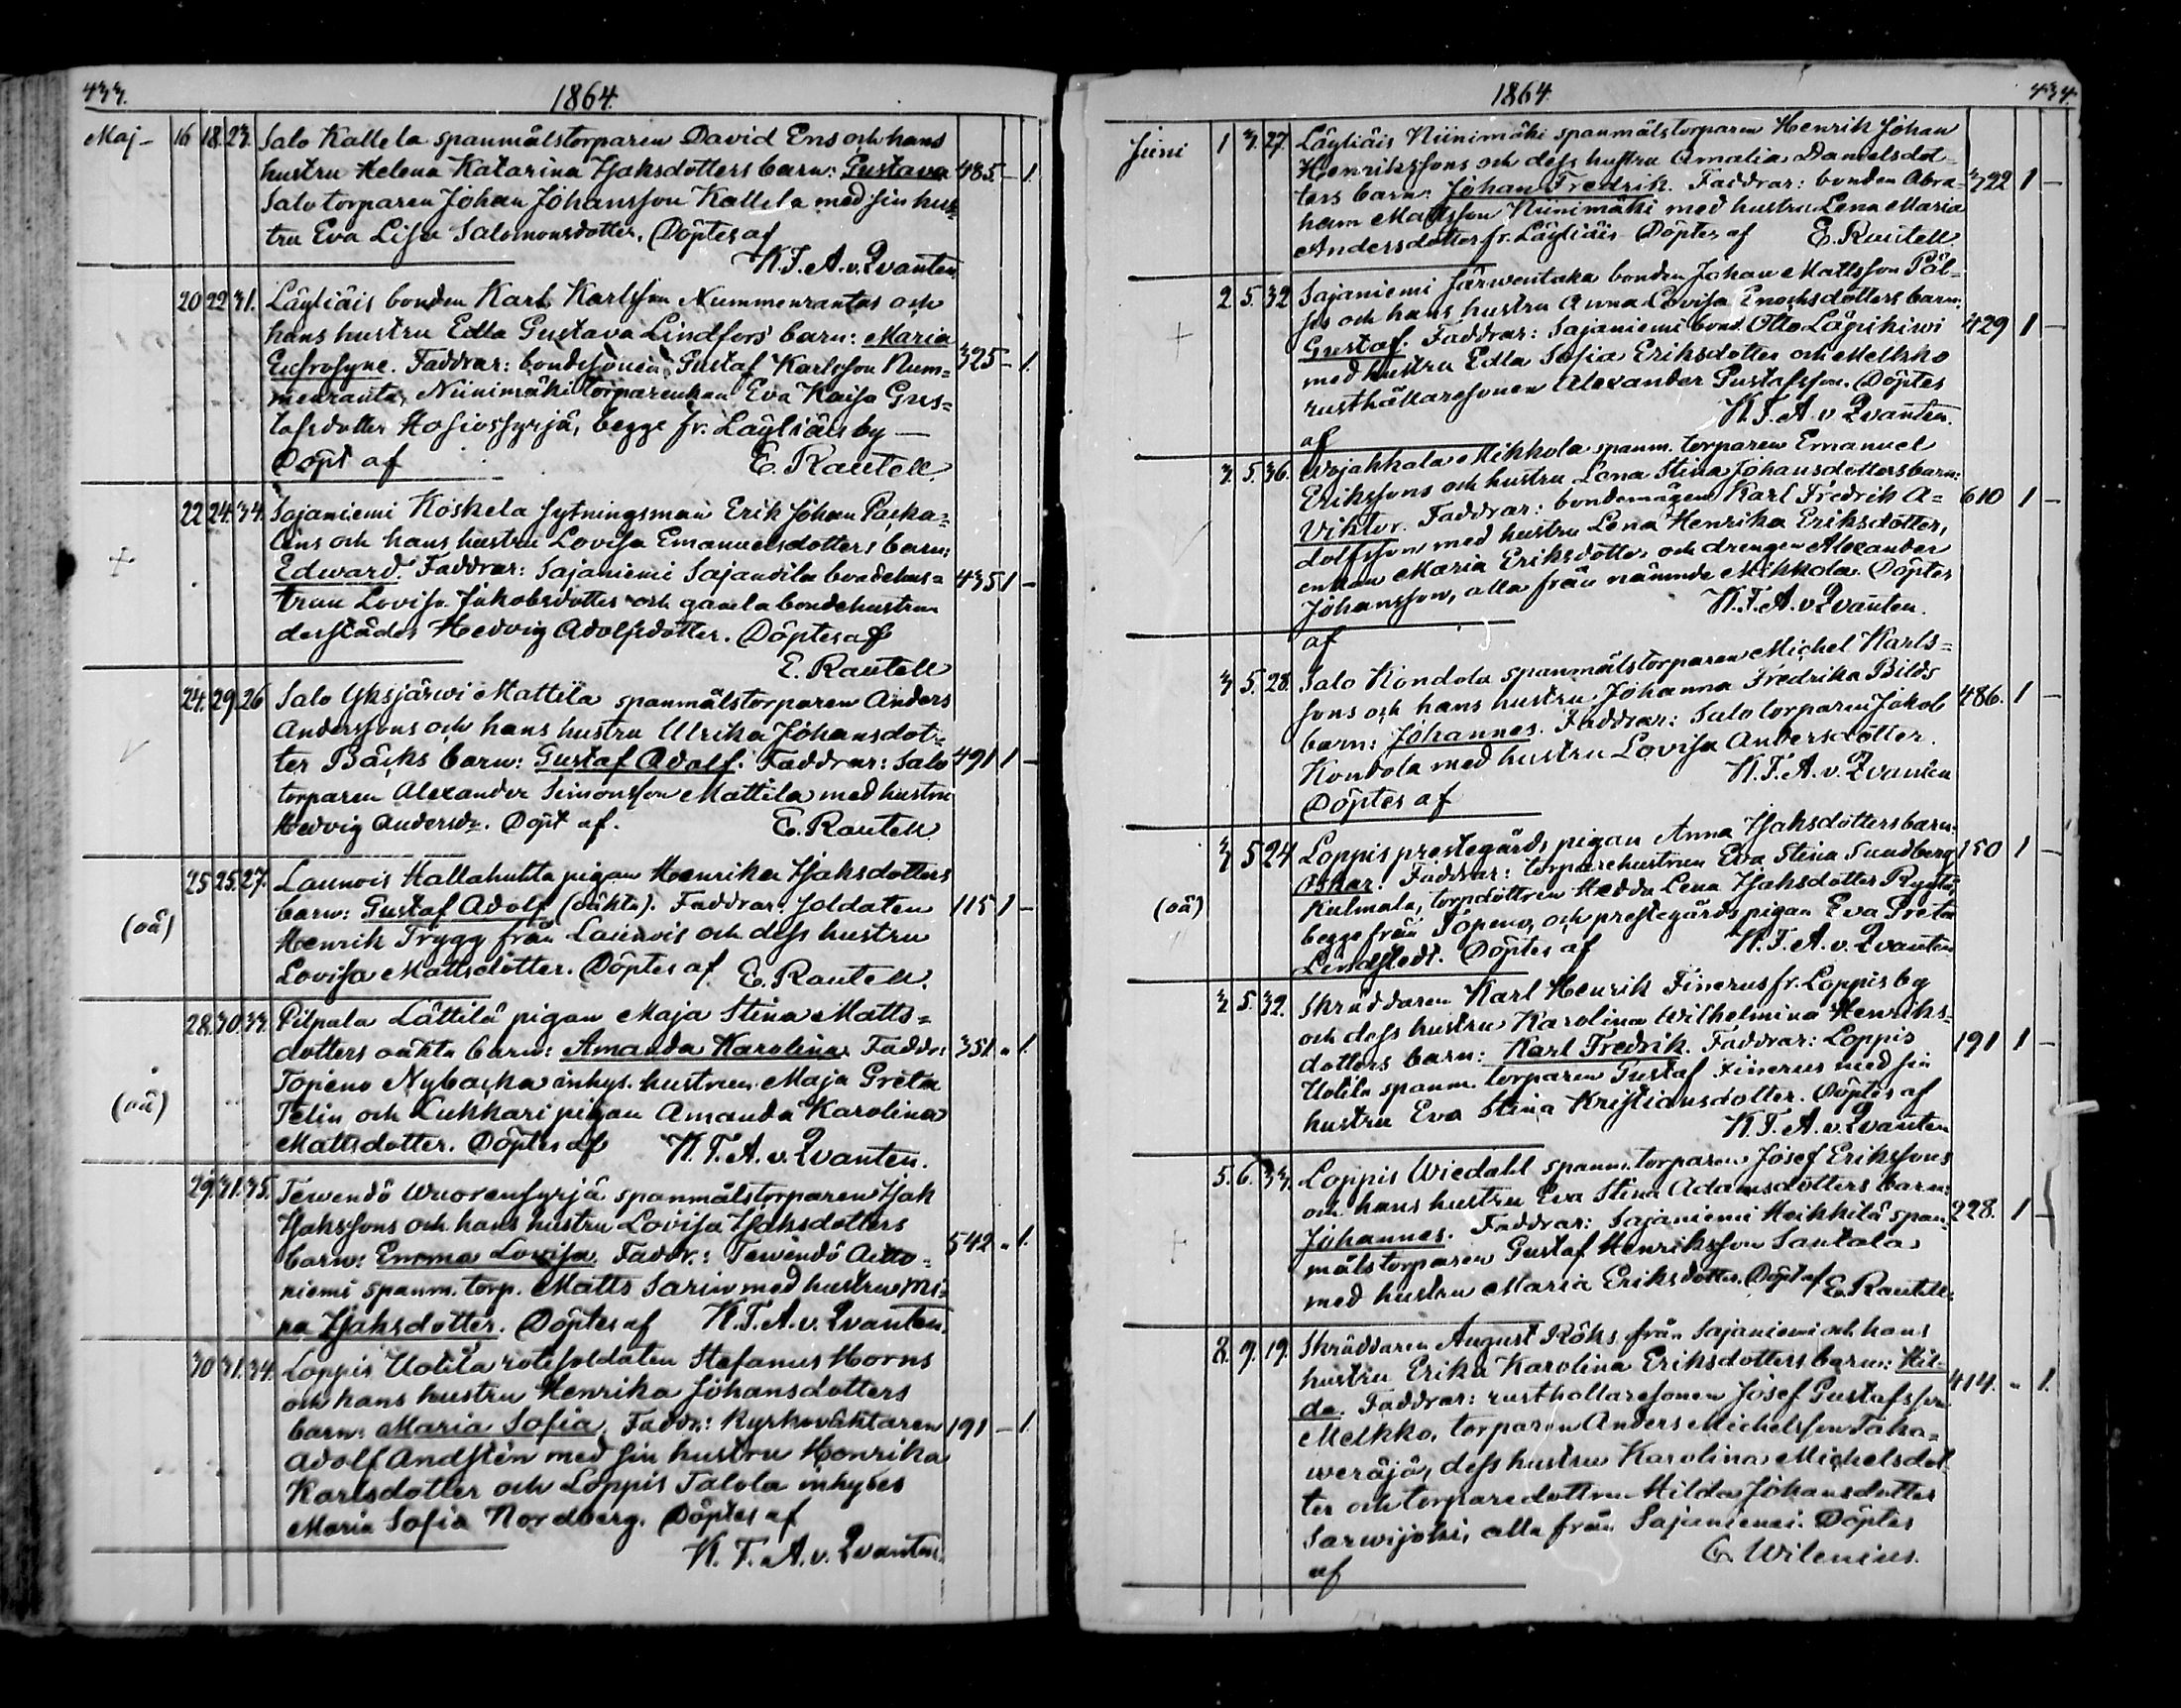 433.
1864.
Maj - 16 18. 23. Salo Kallela spanmålstorparen David Ens och hans
hustru Helena Katarina Isaksdotters barn: Gustava 485. - 1
Salo torparen Johan Johansson Kallela med sin hus=
tru Eva Lisa Salomonsdotter. Döptes af
K.T.A.v.Qvanten.
20 22 31. Läyliäis bonden Karl Karlsson Nummenrantas och
hans hustru Edla Gustava Lindfors' barn: Maria
Eufrosyne. Faddrar: bondesonen Gustaf Karlsson Num= 325 - 1.
menranta, Niinimäki torparenkan Eva Kaisa Gus=
tafsdotter Hosiossyrjä, begge fr. Läyliäis by —
Döpt af E. Rautell.
22 24. 34. Sajaniemi Koskela sytningsman Erik Johan Packa=
lens och hans hustru Lovisa Emanuelsdotters barn:
+ Edward. Faddrar: Sajaniemi Sajandila bondehus= 435 1 -
trun Lovisa Jakobsdotter och gamla bondehustrun
derstädes Hedvig Adolfsdotter. Döptes af
E. Rautell
24. 29. 26 Salo Yksjärwi Mattila spanmålstorparen Anders
Anderssons och hans hustru Ulrika Johansdot=
ter Bäcks barn: Gustaf Adolf. Faddrar: Salo 491 1 -
torparen Alexander Simonsson Mattila med hustru
Hedvig Andersdr. Döpt af. E. Rautell
25 25. 27. Launois Hallahuhta pigan Henrika Isaksdotters
(oä) barn: Gustaf Adolf (oäkta). Faddrar: soldaten 115 1 -
Henrik Trygg från Launois och dess hustru
Lovisa Mattsdotter. Döptes af E. Rautell.
28. 30. 33. Pilpala Lättilä pigan Maja Stina Matts=
dotters oäkta barn: Amanda Karolina. Faddr: 351. " 1.
(oä) Topeno Nybacka inhys. hustrun Maja Greta
Telin och Lukkari pigan Amanda Karolina
Mattsdotter. Döptes af K.T.A.v.Qvanten.
29. 31. 35. Tewendö Wuorensyrjä spanmålstorparen Isak
Isakssons och hans hustru Lovisa Isaksdotters
barn: Emma Lovisa. Faddr.: Tewendö Aitto= 542 " 1.
niemi spanm. torp. Matts Sarin med hustru Mi=
na Isaksdotter. Döptes af K.T.A.v.Qvanten.
30 31. 34. Loppis Uotila rotesoldaten Stefanus Horns
och hans hustru Henrika Johansdotters
barn: Maria Sofia. Faddr.: kyrkoväktaren 191 - 1
Adolf Andstén med sin hustru Henrika
Karlsdotter och Loppis Talola inhyses
Maria Sofia Nordberg. Döptes af
K.T.A.v.Qvanten.
1864
434.
Juni 1 3. 27. Läyliäis Niinimäki spanmålstorparen Henrik Johan
Henrikssons och dess hustru Amalia Danielsdot=
ters barn: Johan Fredrik. Faddrar: bonden Abra= 322 1 -
ham Mattsson Niinimäki med hustru Lena Maria
Andersdotter fr. Läyliäis Döptes af E. Rautell.
2 5. 32 Sajaniemi Järwentaka bonden Johan Mattsson Pöl=
sös och hans hustru Anna Lovisa Enochsdotters barn:
+ Gustaf. Faddrar: Sajaniemi bond. Otto Läpikiwi 429 1 -
med hustru Edla Sofia Eriksdotter och Melkko
rusthållaresonen Alexander Gustafsson. Döptes
af K.T.A.v Qvanten.
3. 5. 36. Wojakkala Mikkola spanm. torparen Emanuel
Erikssons och hustru Lena Stina Johansdotters barn:
Viktor. Faddrar: bondemågen Karl Fredrik A= 610 1 -
dolfsson med hustru Lena Henrika Eriksdotter,
enkan Maria Eriksdotter och drengen Alexander
Johansson, alla från nämnda Mikkola. Döptes
af K.T.A.v Qvanten.
3 5. 28. Salo Kondola spanmålstorparen Michel Karls=
sons och hans hustru Johanna Fredrika Bilds
barn: Johannes. Faddrar: Salo torparen Jakob 486. 1 -
Kondola med hustru Lovisa Andersdotter.
Döptes af K.T.A.v.Qvanten
3 5 24 Loppis prestegårds pigan Anna Isaksdotters barn:
Oskar. Faddrar: torparehustrun Eva Stina Sundberg 150 1 -
(oä) Kulmala, torpdottren Hedda Lena Isaksdotter
begge från Topeno, och prestegårds pigan Eva Greta
Lindstedt. Döptes af K.T.A.v.Qvanten
3 5. 32. Skräddaren Karl Henrik Finerus fr. Loppis by
och dess hustru Karolina Wilhelmina Henriks=
dotters barn: Karl Fredrik. Faddrar: Loppis 191 1 -
Uotila spanm. torparen Gustaf Finerus med sin
hustru Eva Stina Kristiansdotter. Döptes af
K.T.A.v.Qvanten
5. 6. 33. Loppis Wiedahl spanm. torparen Josef Erikssons
och hans hustru Eva Stina Adamsdotters barn:
+ Johannes. Faddrar: Sajaniemi Heikkilä span= 228. 1 -
målstorparen Gustaf Henriksson Santala
med hustru Maria Eriksdotter. Döpt af E. Rautell.
8. 9. 19. Skräddaren August Röks från Sajaniemi och hans
hustru Erika Karolina Eriksdotters barn: Hil=
da. Faddrar: rusthållaresonen Josef Gustafsson 414. " 1.
Melkko, torparen Anders Michelsson Taka=
weräjä, dess hustru Karolina Michelsdot=
ter och torparedottren Hilda Johansdotter
Sarwijoki, alla från Sajaniemi. Döptes
af G. Wilenius.